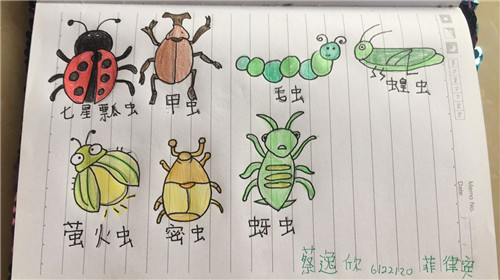 七星瓢虫 甲虫 毛虫 蝗虫
萤火虫 密虫 蚜虫
蔡逸欣 6122120 菲律宾
Memo No.
Date